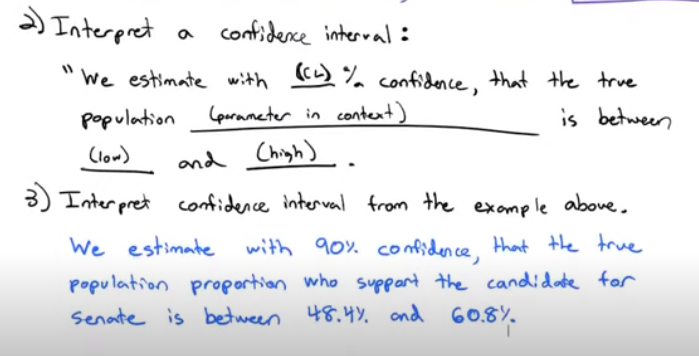 2) Interpret a confidence interval:
"We estimate with (CL) % confidence, that the true
population (parameter in context) is between
(low) and (high).
3) Interpret confidence interval from the example above.
We estimate with 90% confidence, that the true
population proportion who support the candidate for
Senate is between 48.4% and 60.8%.